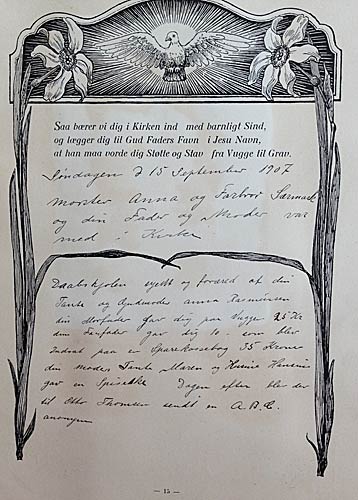 Saa bærer vi dig i Kirken ind med barnligt Sind,
og lægger dig til Gud Faders Favn i Jesu Navn,
at han maa vorde dig Støtte og Stav fra Vugge til Grav.
Søndagen d 15 September 1907
Moster Anna og Farbror
og din Fader og Moder var
med i Kirke
Daabskjolen syett og foræred af din
Tante og Gudmoder Anna Rasmussen
din Morfader gav dig paa Vuggen 25 Kr
din Farfader gav dig 10. som blev
Indsat paa en Sparekassebog 35 Kroner
din moders Tante Maren og Hansine
gav en Dagen efter blev der
til Otto Thomsen sendt en A.B.C.
anonym
— 15 —